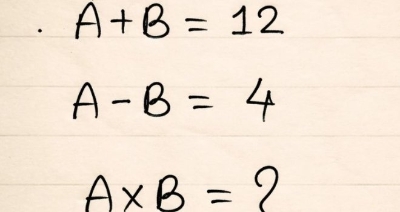 A+B = 12
A-B = 4
A×B = ?